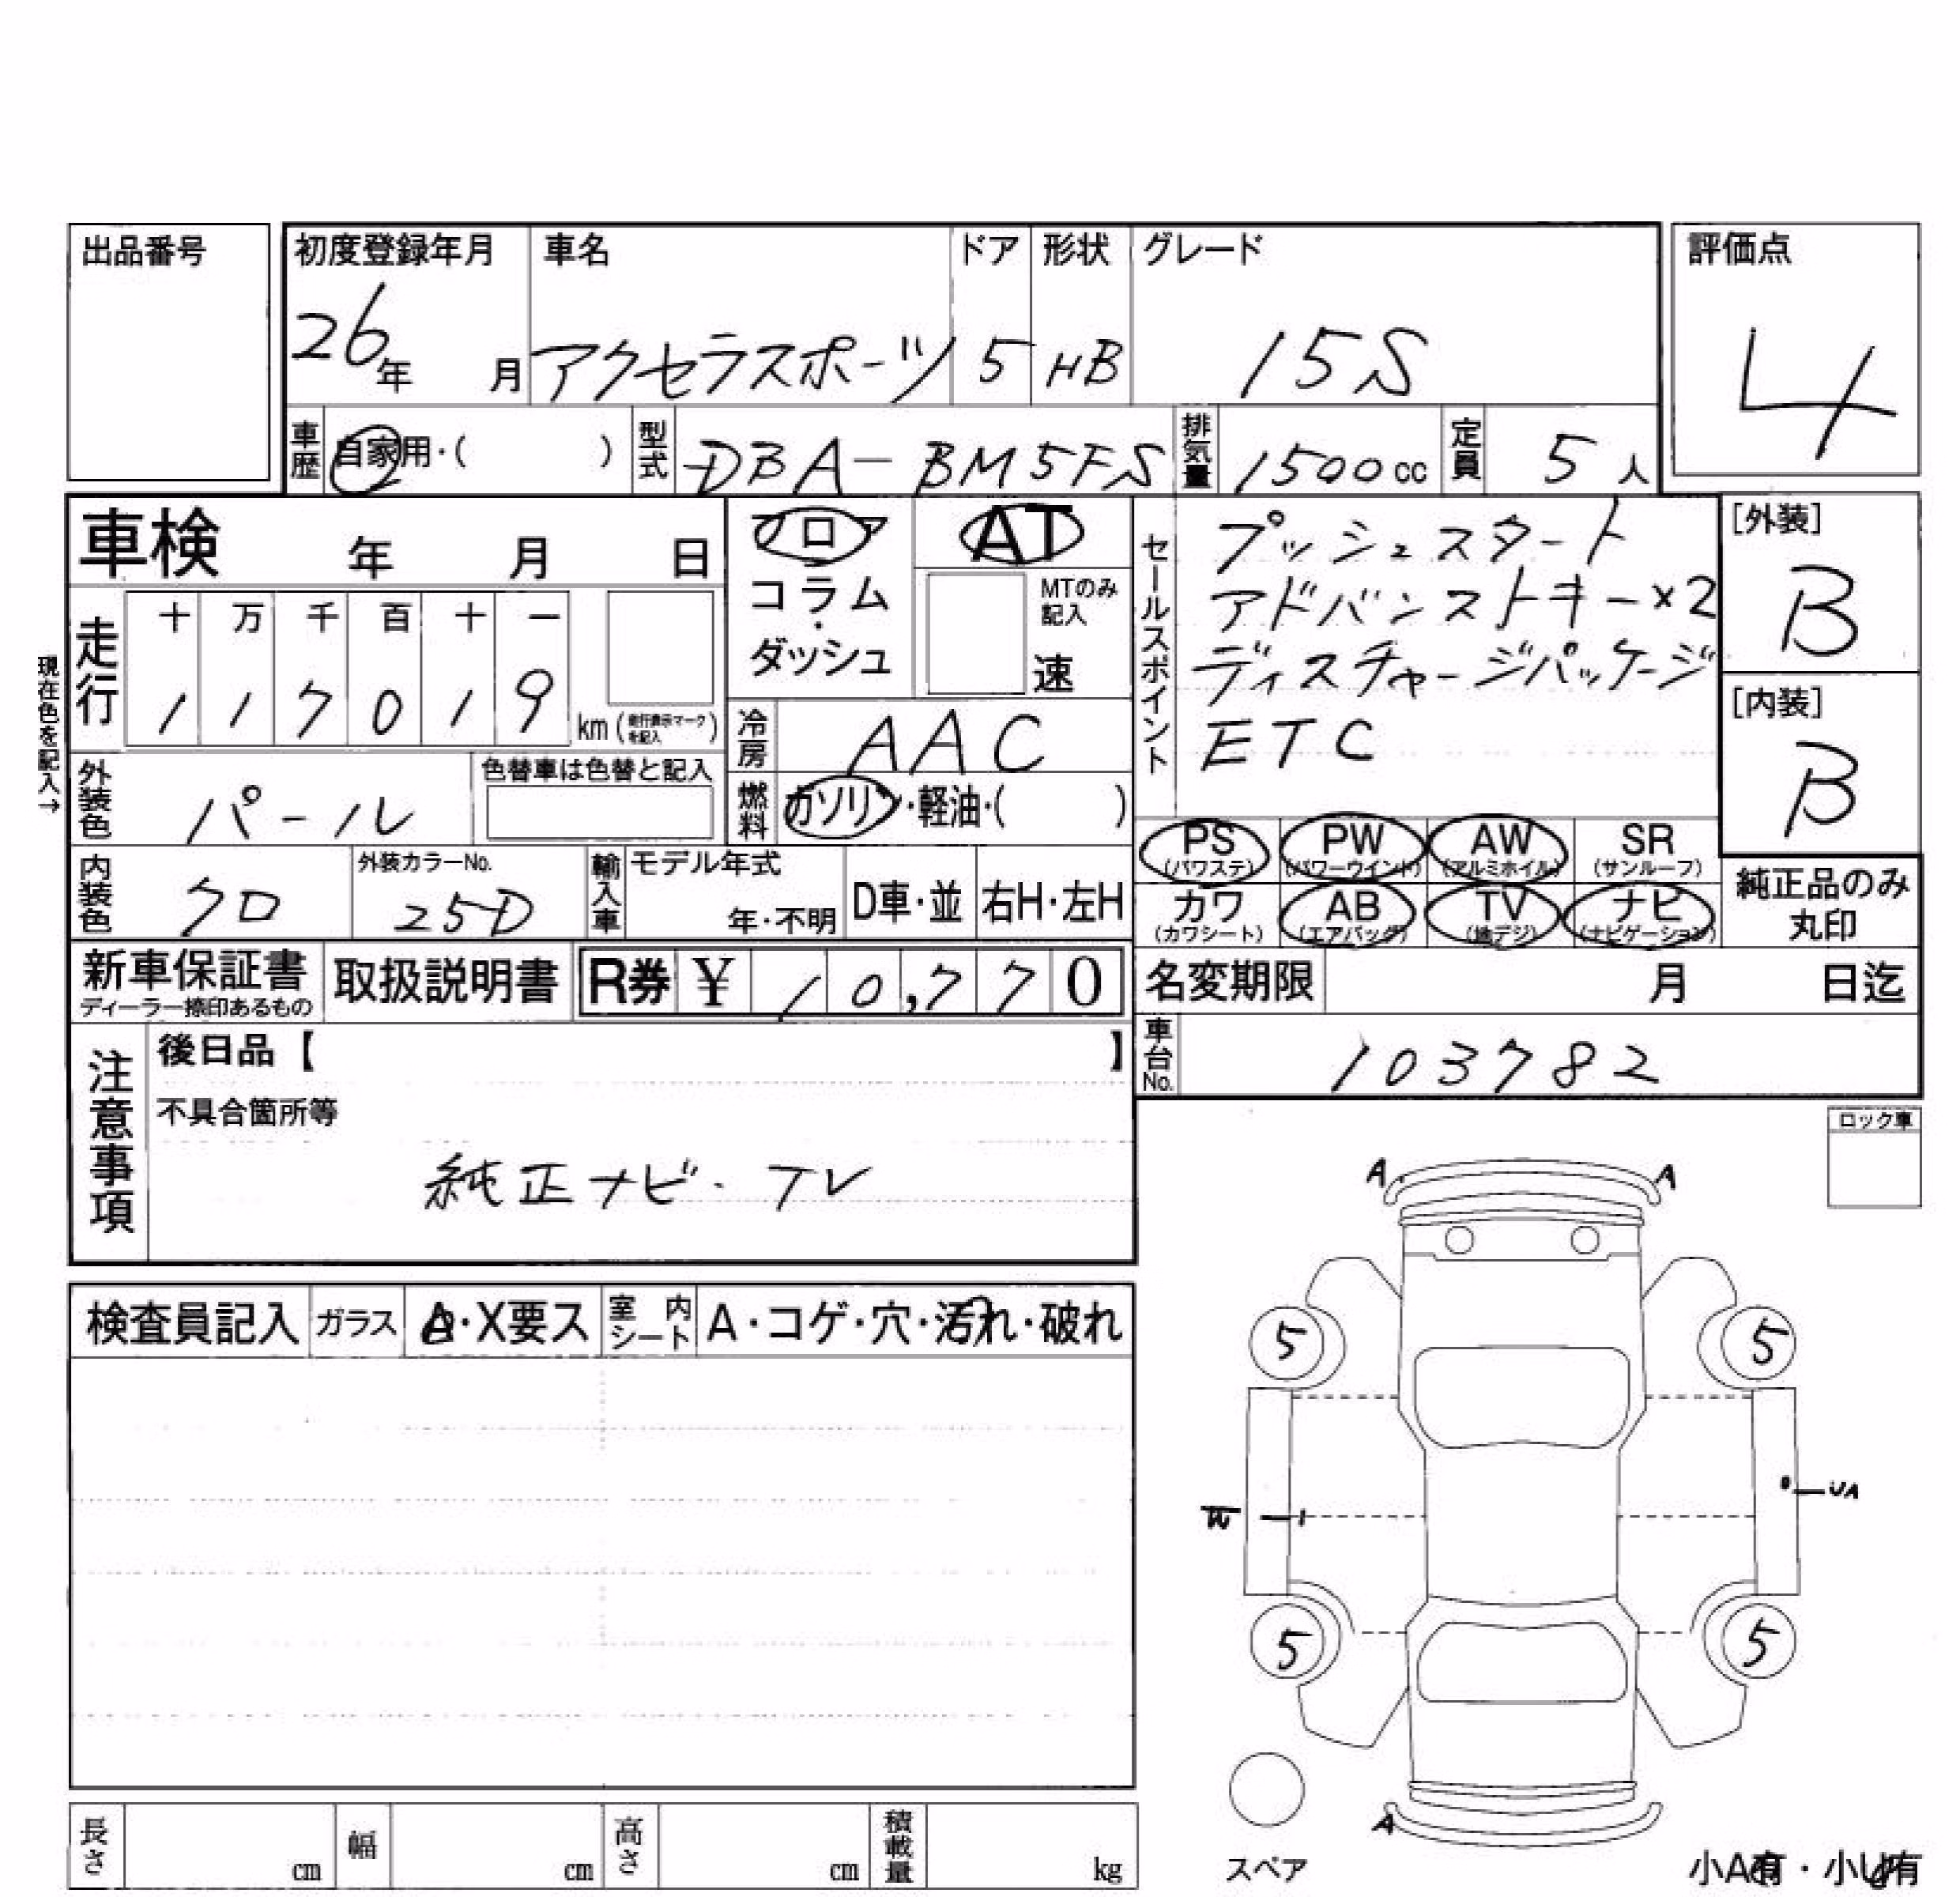 出品番号
初度登録年月 車名 ドア 形状 グレード 評価点
26年 月 アクセラスポーツ 5 HB 15S 4
車歴 自家用・( ) 型式 DBA-BM5FS 排気量 1500cc 定員 5人
車検 年 月 日
フロア AT
コラム・ダッシュ MTのみ記入 速
セールスポイント
プッシュスタート
アドバンストキー×2
ディスチャージパッケージ
ETC
[外装]
B
[内装]
B
現在色を記入→
走行 十 万 千 百 十 一
1 1 7 0 1 9 km (走行表示マークを記入)
冷房 AAC
外装色 パール 色替車は色替と記入
燃料 ガソリン・軽油・( )
PS (パワステ) PW (パワーウインド) AW (アルミホイル) SR (サンルーフ)
カワ (カワシート) AB (エアバッグ) TV (地デジ) ナビ (ナビゲーション)
純正品のみ丸印
内装色 クロ 外装カラーNo. 25D 輸入車 モデル年式 年・不明 D車・並 右H・左H
新車保証書 ディーラー捺印あるもの 取扱説明書 R券 ¥ 10,770
名変期限 月 日迄
車台No. 103782
注意事項
後日品【 】
不具合箇所等
純正ナビ・TV
ロック車
A A
検査員記入 ガラス A・X要ス 室内シート A・コゲ・穴・汚れ・破れ
5 5
W UA
5 5
A
スペア
長さ cm 幅 cm 高さ cm 積載量 kg
小A有・小U有